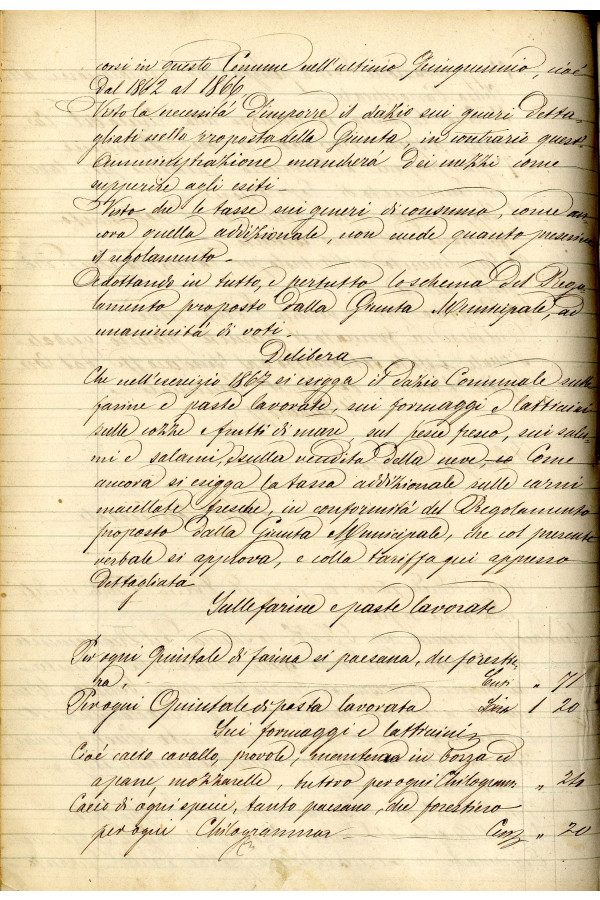 corsi in questo Comune nell'ultimo Quinquennio, cioè
Dal 1862 al 1866
Visto la necessità d'imporre il dazio sui generi detta-
gliati nella proposta della Giunta, in contrario quest'
Amministrazione mancherà dei mezzi come
supperire agli esiti.
Visto che le tasse sui generi di consumo, come an
cora quella addizionale, non eccede quanto prescrive
il regolamento.
Adottando in tutto, e pertutto lo schema del Rego
lamento proposto dalla Giunta Municipale, ad
unanimità di voti.
Delibera
Che nell'esercizio 1867 si esigga il dazio Comunale sulle
farine e paste lavorate, sui formaggi e latticini
sulle cozze e frutti di mare, sul pesce fresco, sui salu-
mi e salami, sulla vendita della neve, Come
ancora si esigga la tassa addizionale sulle carni
macellate fresche, in conformità del Regolamento
proposto dalla Giunta Municipale, che col presente
verbale si approva, e colla tariffa qui appresso
Dettagliata
Sulle farine e paste lavorate
Per ogni Quintale di farina si paesana, che forestie-
ra, " 71
Per ogni Quintale di pasta lavorata Lire 1 20
Sui formaggi e latticini
Cioè cacio cavallo, provole, in borza ed
a pane, mozzarelle, butirro per ogni Chilogramm " 24
Cacio di ogni specie, tanto paesano, che forestiero
per ogni Chilogramma " 20